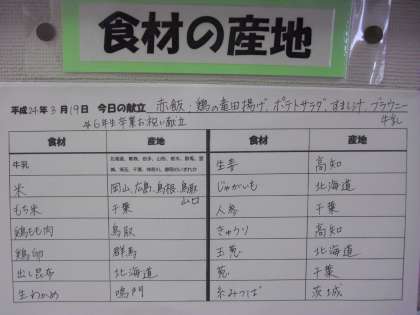 食材の産地
平成24年3月19日 今日の献立 赤飯、鶏の竜田揚げ、ポテトサラダ、すまし汁、ブラウニー
牛乳
☆6年生卒業お祝い献立
食材 産地 食材 産地
牛乳 生姜 高知
米 岡山、広島、島根、鳥取 じゃがいも 北海道
山口
もち米 千葉 人参 千葉
鶏もも肉 鳥取 きゅうり 高知
鶏卵 群馬 玉葱 北海道
出し昆布 北海道 葱 千葉
生わかめ 鳴門 糸みつば 茨城